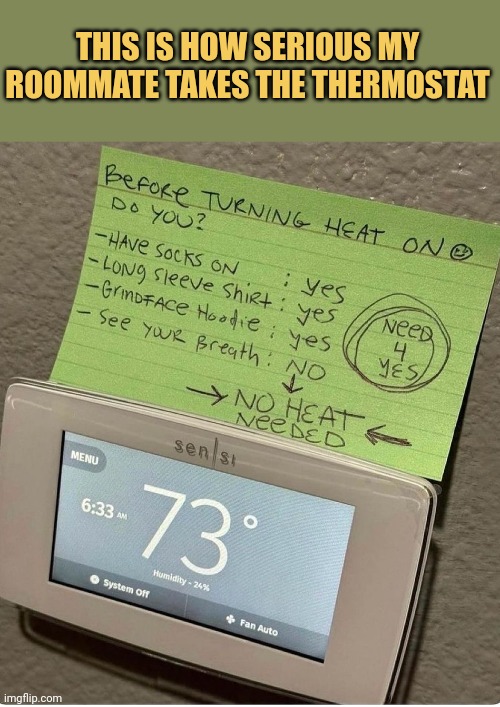 THIS IS HOW SERIOUS MY
ROOMMATE TAKES THE THERMOSTAT
BEFORE TURNING HEAT ON
DO YOU?
-HAVE SOCKS ON : yes
-LONG Sleeve Shirt : yes
-GrindFACE Hoodie : yes
- See YOUR Breath : NO
NEED
4
YES
→ NO HEAT
NEEDED ←
sensi
MENU
6:33 AM
73°
Humidity - 24%
System Off
Fan Auto
imgflip.com